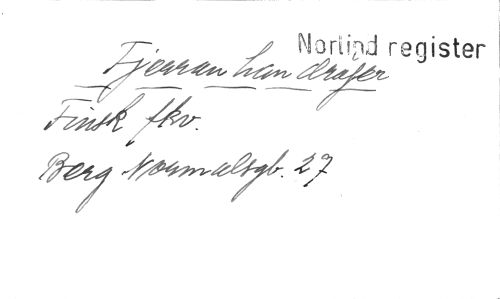 Nortind register
Fjerran han dräger
Finsk fkv.
Berg Normalsgb. 27